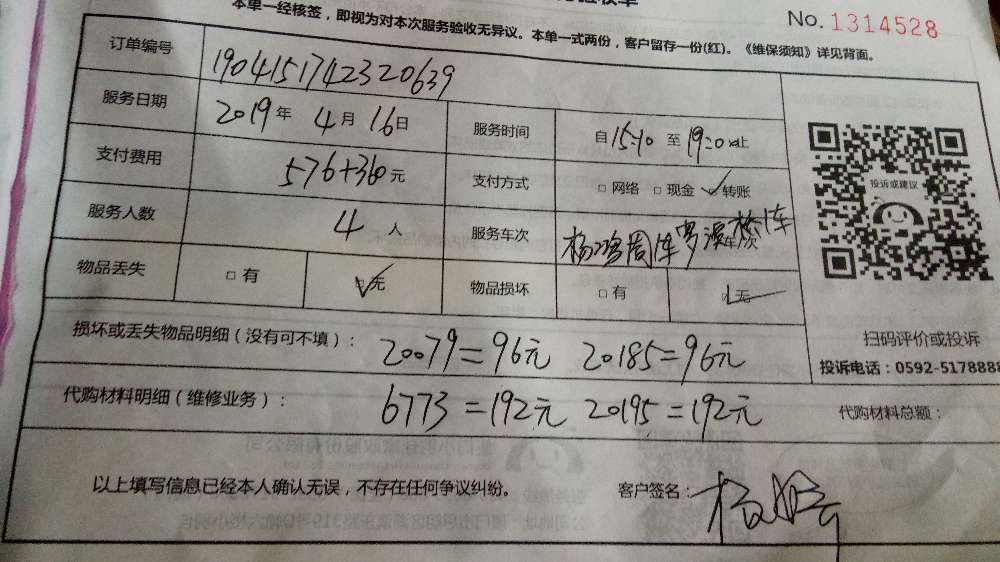 No. 1314528
本单一经核签，即视为对本次服务验收无异议。本单一式两份，客户留存一份(红)。《维保须知》详见背面。
订单编号 1904151742320639
服务日期 2019年 4月 16日 服务时间 自15:10 至 19:0 止
支付费用 576+360元 支付方式 □网络 □现金 ✓转账
投诉或建议
服务人数 4 人 服务车次
物品丢失 □有 ✓无 物品损坏 □有 ✓无
扫码评价或投诉
投诉电话：0592-5178888
损坏或丢失物品明细（没有可不填）： 20079=96元 20185=96元
代购材料明细（维修业务）： 6773=192元 20195=192元 代购材料总额：
以上填写信息已经本人确认无误，不存在任何争议纠纷。 客户签名：